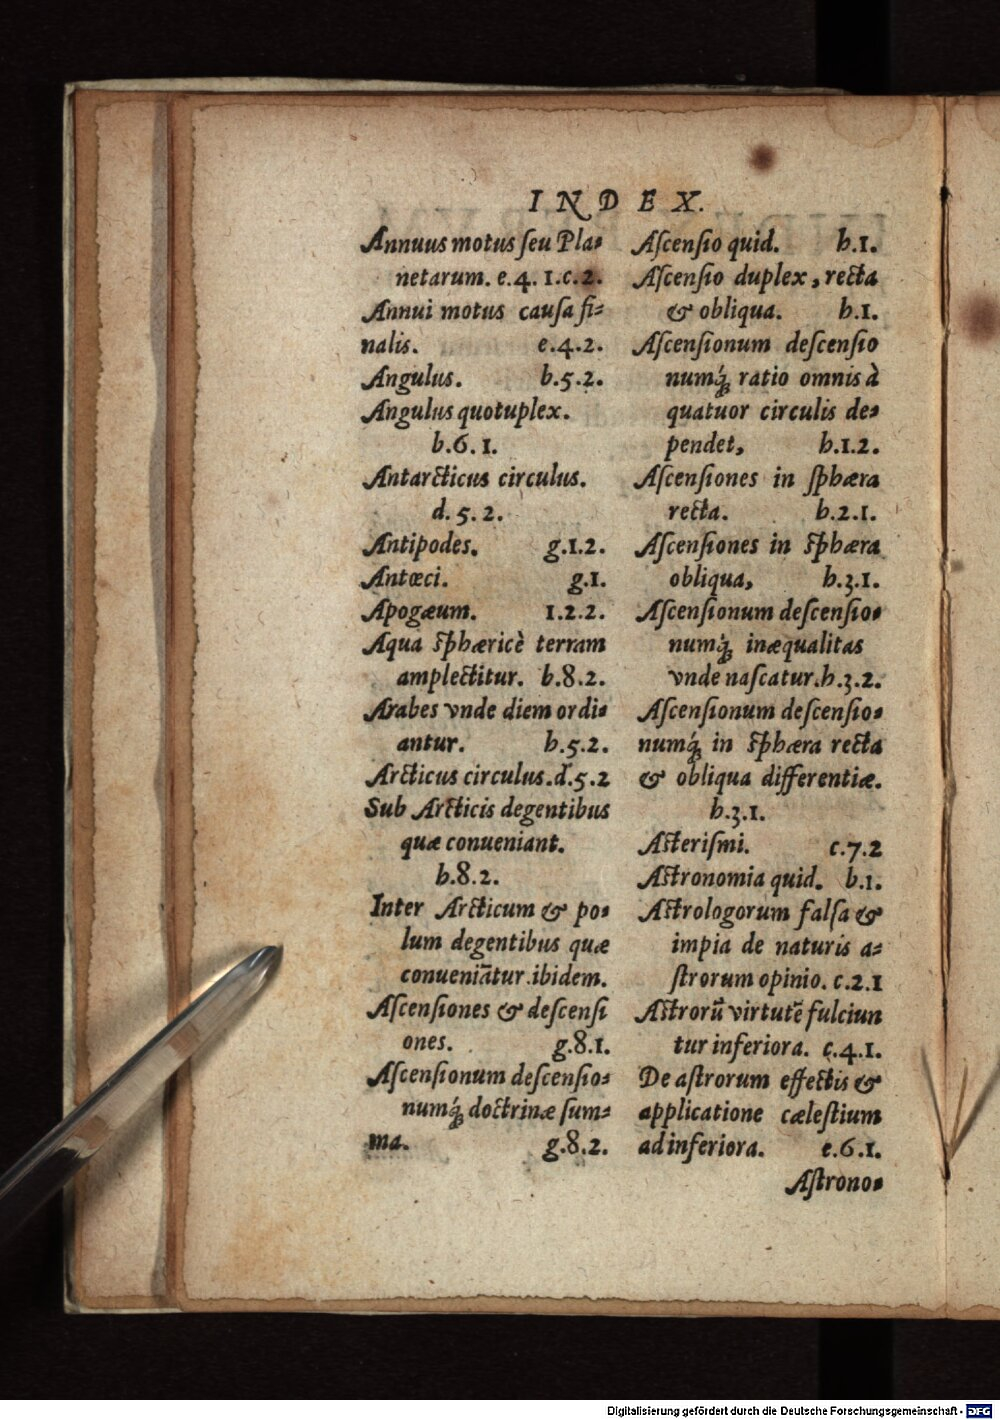 INDEX.
Annuus motus ſeu Pla-
netarum. e.4. 1.c.2.
Annui motus cauſa fi-
nalis. e.4.2.
Angulus. b.5.2.
Angulus quotuplex.
b.6.1.
Antarcticus circulus.
d.5.2.
Antipodes. g.1.2.
Antœci. g.1.
Apogæum. 1.2.2.
Aqua ſphæricè terram
amplectitur. b.8.2.
Arabes vnde diem ordi-
antur. h.5.2.
Arcticus circulus.d.5.2
Sub Arcticis degentibus
quæ conueniant.
h.8.2.
Inter Arcticum & po-
lum degentibus quæ
conueniãtur.ibidem.
Aſcenſiones & deſcenſi
ones. g.8.1.
Aſcenſionum deſcenſio-
numq́; doctrinæ ſum-
ma. g.8.2.
Aſcenſio quid. h.1.
Aſcenſio duplex, recta
& obliqua. h.1.
Aſcenſionum deſcenſio
numq́; ratio omnis à
quatuor circulis de-
pendet, h.1.2.
Aſcenſiones in ſphæra
recta. h.2.1.
Aſcenſiones in ſphæra
obliqua, h.3.1.
Aſcenſionum deſcenſio-
numq́; inæqualitas
vnde naſcatur.h.3.2.
Aſcenſionum deſcenſio-
numq́; in ſphæra recta
& obliqua differentiæ.
h.3.1.
Aſteriſmi. c.7.2
Aſtronomia quid. b.1.
Aſtrologorum falſa &
impia de naturis a-
ſtrorum opinio. c.2.1
Aſtrorũ virtutẽ fulciun
tur inferiora. c.4.1.
De aſtrorum effectis &
applicatione cæleſtium
ad inferiora. e.6.1.
Aſtrono-
Digitalisierung gefördert durch die Deutsche Forschungsgemeinschaft - DFG